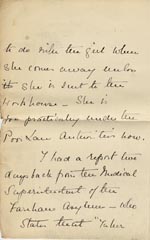 to do with the girl when
she comes away unless
it she is sent to the
Workhouse — She is
practically under the
Poor Law Authorities now.
I had a report two
days back from the Medical
Superintendent of the
Fareham Asylum — who
States that "